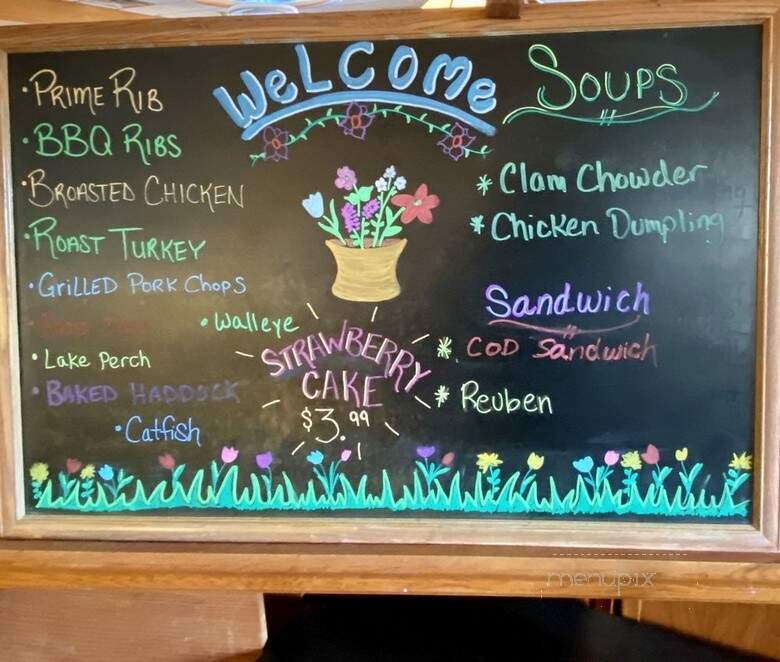 WeLCOMe
• PRIME RIB
• BBQ RIBS
• BROASTED CHICKEN
• ROAST TURKEY
• GRILLED PORK CHOPS
• Walleye
• LAKE PERCH
• BAKED HADDOCK
• Catfish
STRAWBERRY
CAKE
$3.99
SOUPS
* Clam Chowder
* Chicken Dumpling
Sandwich
* COD Sandwich
* Reuben
menupix